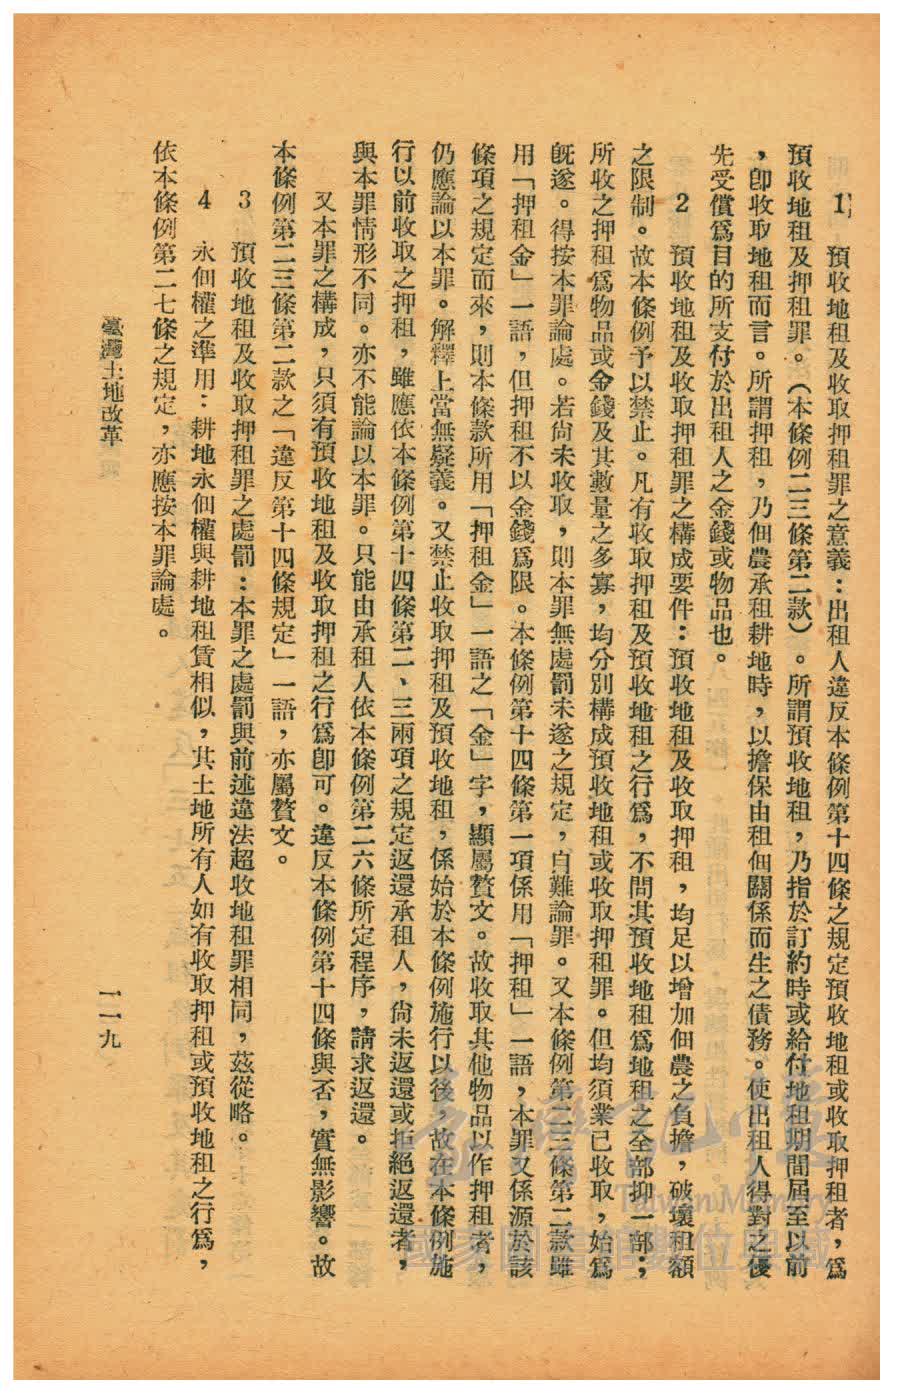 1　預收地租及收取押租罪之意義：出租人違反本條例第十四條之規定預收地租或收取押租者，爲
預收地租及押租罪。（本條例二三條第二款）。所謂預收地租，乃指於訂約時或給付地租期間屆至以前
，卽收取地租而言。所謂押租，乃佃農承租耕地時，以擔保由租佃關係而生之債務。使出租人得對之優
先受償爲目的所支付於出租人之金錢或物品也。
2　預收地租及收取押租罪之構成要件：預收地租及收取押租，均足以增加佃農之負擔，破壞租額
之限制。故本條例予以禁止。凡有收取押租及預收地租之行爲，不問其預收地租爲地租之全部抑一部；
所收之押租爲物品或金錢及其數量之多寡，均分別構成預收地租或收取押租罪。但均須業已收取，始爲
旣遂。得按本罪論處。若尙未收取，則本罪無處罰未遂之規定，自難論罪。又本條例第二三條第二款雖
用「押租金」一語，但押租不以金錢爲限。本條例第十四條第一項係用「押租」一語，本罪又係源於該
條項之規定而來，則本條款所用「押租金」一語之「金」字，顯屬贅文。故收取其他物品以作押租者，
仍應論以本罪。解釋上當無疑義。又禁止收取押租及預收地租，係始於本條例施行以後，故在本條例施
行以前收取之押租，雖應依本條例第十四條第二、三兩項之規定返還承租人，尙未返還或拒絕返還者，
與本罪情形不同。亦不能論以本罪。只能由承租人依本條例第二六條所定程序，請求返還。
又本罪之構成，只須有預收地租及收取押租之行爲卽可。違反本條例第十四條與否，實無影響。故
本條例第二三條第二款之「違反第十四條規定」一語，亦屬贅文。
3　預收地租及收取押租罪之處罰：本罪之處罰與前述違法超收地租罪相同，茲從略。
4　永佃權之準用：耕地永佃權與耕地租賃相似，其土地所有人如有收取押租或預收地租之行爲，
依本條例第二七條之規定，亦應按本罪論處。
臺灣土地改革
一一九
臺灣記憶
Taiwan Memory
國家圖書館數位典藏